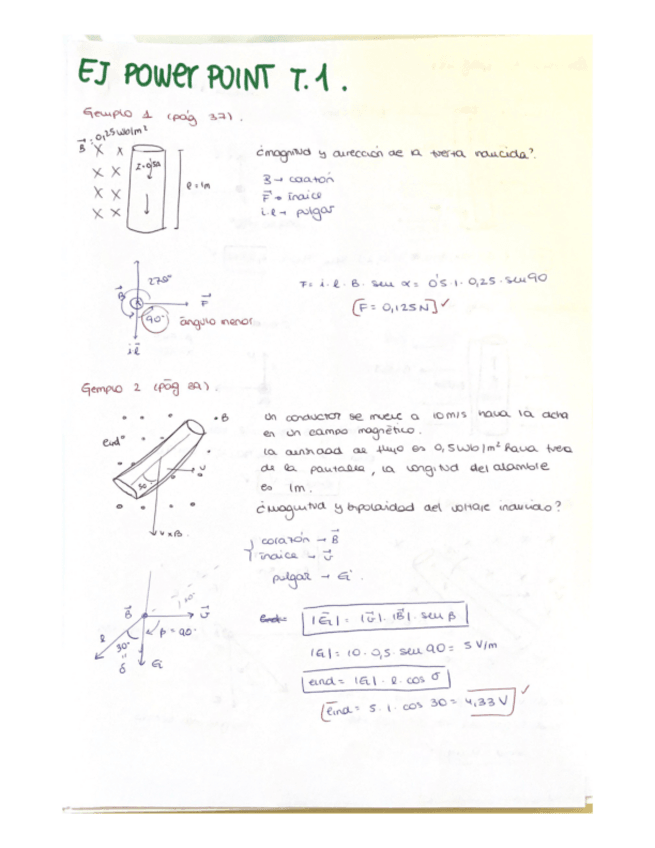 EJ POWER POINT T.1.
Ejemplo 1 (pág 37).
B⃗: 0,25 Wb/m²
I=0'5A
l = 1m
¿magnitud y dirección de la fuerza inducida?
B → corazón
F⃗ → índice
i·l → pulgar
270°
B⃗
F⃗
90°
ángulo menor
i l⃗
F = i · l · B · sen α = 0'5 · 1 · 0,25 · sen 90
[F = 0,125N] ✓
Ejemplo 2 (pág
B
eind⁺
30°
v
v x B.
Un conductor se mueve a 10 m/s hacia la dcha
en un campo magnético.
La densidad de flujo es 0,5 Wb/m² hacia fuera
de la pantalla, la longitud del alambre
es 1m.
¿Magnitud y polaridad del voltaje inducido?
corazón → B⃗
índice → v⃗
pulgar → G⃗.
B⃗
v⃗
β = 90°
l
30°
δ
G⃗
|G⃗| = |v⃗| · |B⃗| · sen β
|G| = 10 · 0,5 · sen 90 = 5 V/m
eind = |G| · l · cos δ
eind = 5 · 1 · cos 30 = 4,33 V ✓